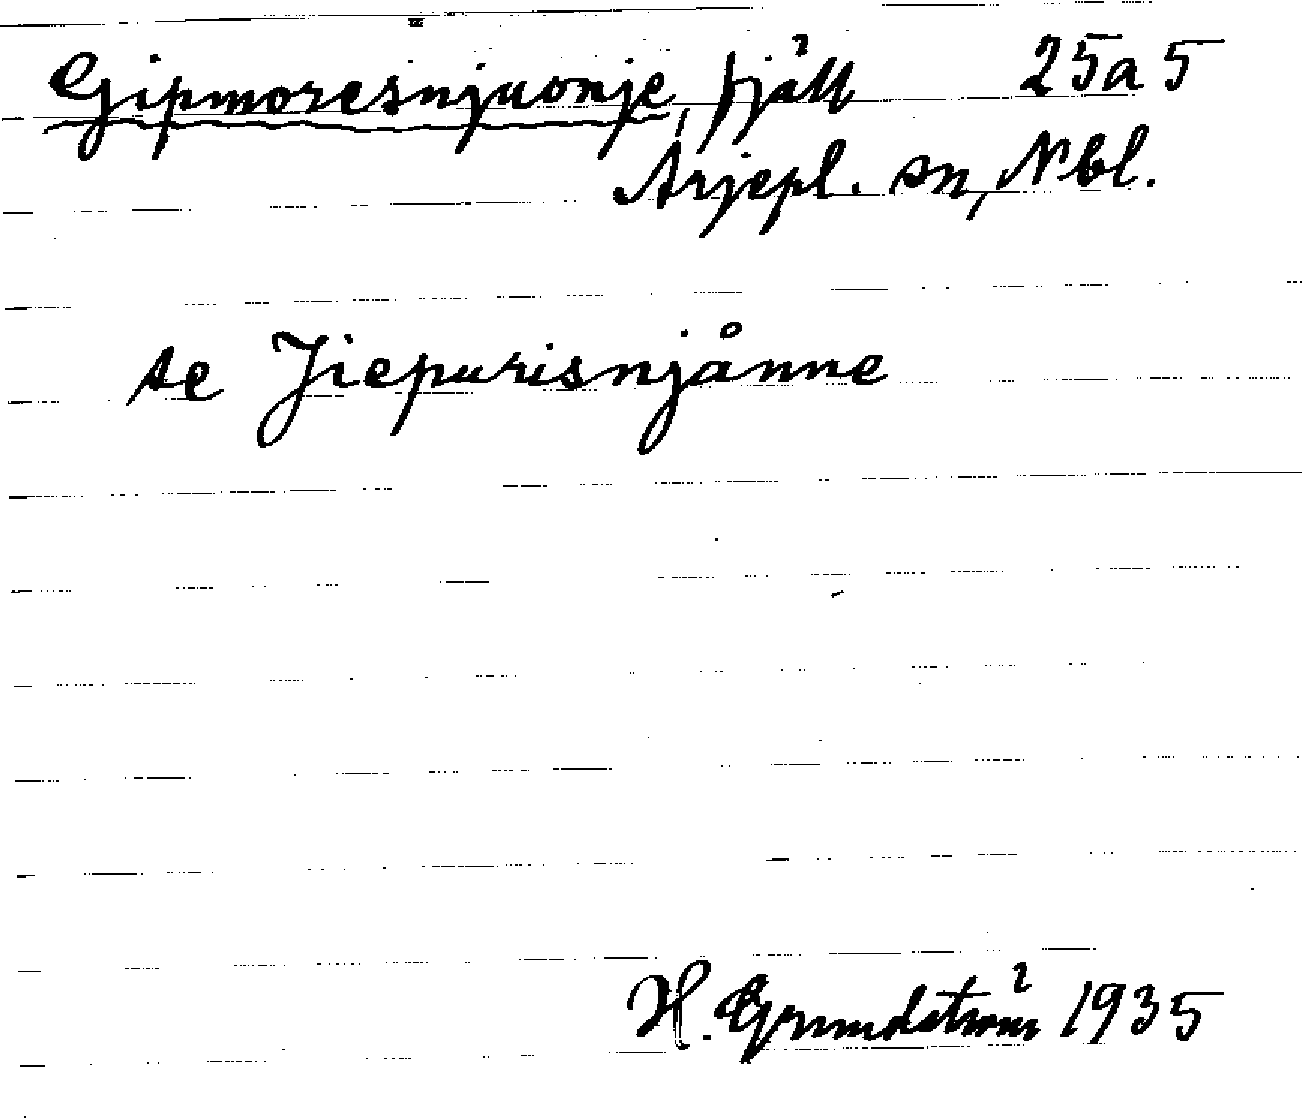 Gipmoresnjuonje, fjäll 25a5
Arjepl. sn, Nbl.
se Jiepurisnjånne
H. Grundström 1935